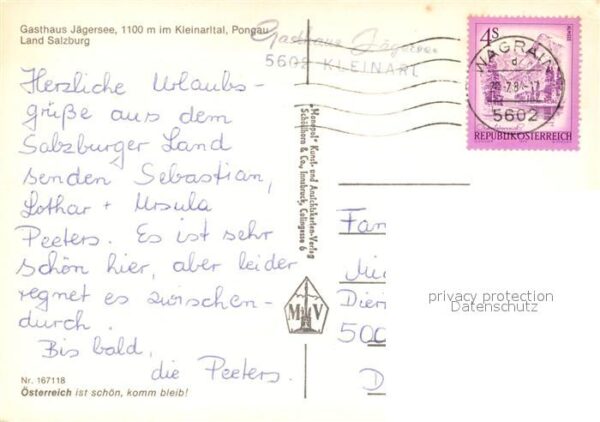 Gasthaus Jägersee, 1100 m im Kleinarltal, Pongau
Land Salzburg
Gasthaus Jägersee
5602 KLEINARL
Herzliche Urlaubs-
grüße aus dem
Salzburger Land
senden Sebastian,
Lothar + Ursula
Peeters. Es ist sehr
schön hier, aber leider
regnet es zwischen-
durch.
Bis bald,
die Peeters.
Nr. 167118
Österreich ist schön, komm bleib!
„Monopol" Kunst- und Ansichtskarten-Verlag
Schöllhorn & Co., Innsbruck, Colingasse 6
M V
4S
WAGRAIN
d
5602
REPUBLIK ÖSTERREICH
Fam
Mi
Dier
500
D
privacy protection
Datenschutz